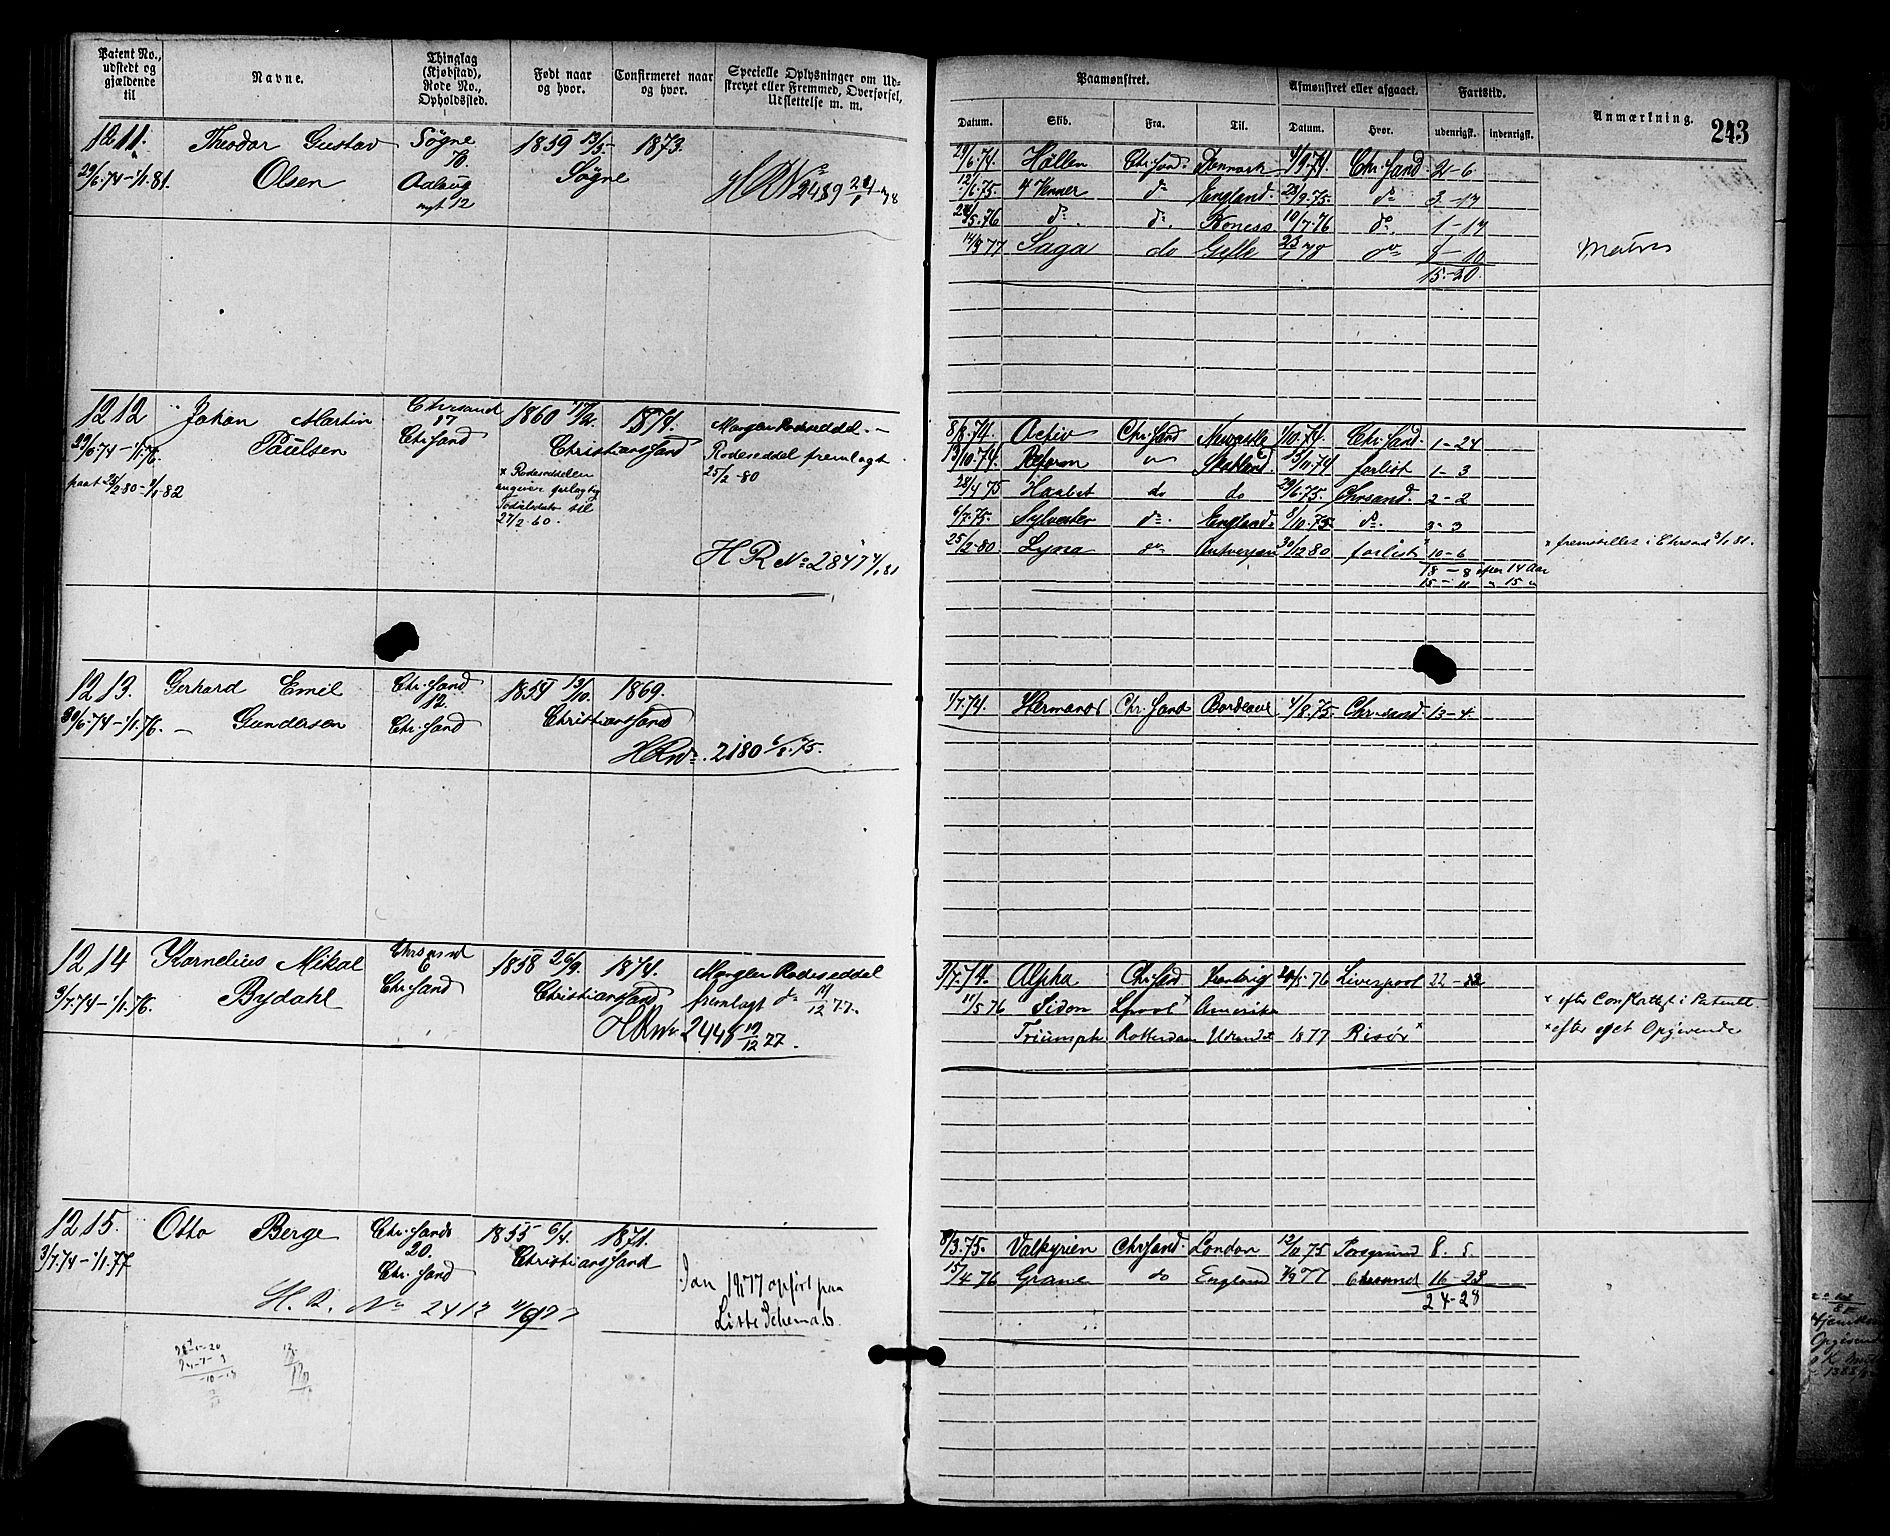 Patent No., udstedt og gjældende til
Navne.
Thinglag (Kjøbstad), Rode No., Opholdssted.
Født naar og hvor.
Confirmeret naar og hvor.
Specielle Oplysninger om Udskrevet eller Fremmed, Overførsel, Udslettelse m. m.
Paamønstret.
Datum.
Skib.
Fra.
Til.
Afmønstret eller afgaaet.
Datum.
Hvor.
Fartstid.
udenrigsk.
indenrigsk.
Anmærkning.
243
1211
Theodor Gustav
Olsen
29/6.74-1/1.81.
Søgne
76
Aabug
1859 13/5
Søgne
1873.
29/6.74. Hallen Chr.sand. Danmark 1/9.74 Chr.sand 2-6
4 Venner do England. 23/9.75. do 3-17
24/5.76 do do. Boness 10/7.76 do. 1-17
14/3 77 Saga do Gefle do 8-10
15.-20.
Matros
1212
Johan Martin
Paulsen
29/6.74-1/1.76.
paat 25/2 80-1/1 82
Chrsand
17
Chr.sand
1860 17/2.
Christianssand
1874.
x Rodeseddelen
angiver
til
27/2.60.
Mangler Rodeseddel.-
Rodeseddel fremlagt
25/2-80
H R No 2847 4/1 81
8/8.74. Activ Chr.sand Newcastle 1/10.74. Chr.sand. 1-24
13/10.74. Reform Skotland forlist 1-3
28/4 75 Haabet do do 29/6.75. Chrsand. 2-2
6/7.75. Sylvester do. England. 8/10.75. do. 3-3
25/2-80 Lyna do Antverpen 30/12 80 forlist x 10-6
18-8 efter 14 Aar
15-11 " 15 "
x fremstillet i Chrsand 3/1 81.
1213.
Gerhard Emil
Gundersen
30/6.74-1/1.76.
Chr.sand
12.
Chr.sand
1854 13/10.
Christianssand
1869.
HRNo. 2180 6/8.75.
1/7.74. Hermanos Chr.sand Bordeaux 4/8.75. Chr.sand. 13-4.
1214
Kornelius Mikal
Bydahl
3/7.74-1/1.76.
Chrsand
6
Chr.sand
1858 26/9.
Christianssand
1874.
Mangler Rodeseddel
fremlagt d: 17/12 77.
HRNo. 2448 17/12 77.
3/7.74. Alpha Chr.sand 24/5.76 Liverpool 22-22
17/5 76 Sidon Lpool x Amerika
Triumph Rotterdam Udlandet 1877 Risør x
x efter i Patentet
x efter eget Opgivende
1215.
Otto Berge
3/7.74-1/1.77
Chr.sands
20.
Chr.sand
1855 6/4.
Christianssand
1871.
H. R. No 2412
Jan 1877 opført paa
Liste Schema 6.
8/3.75. Valkyrien Chrsand. London 12/11 75 Porsgrund 8. 5.
15/4 76 Grane do England Chrsand 16-23
24-28